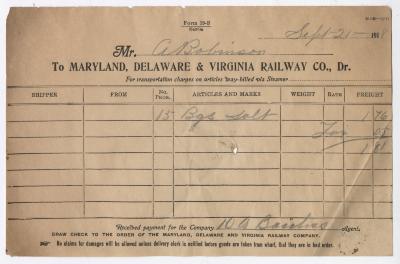 Form 19-B
Sept 21 - 1918
Mr. A Robinson
To MARYLAND, DELAWARE & VIRGINIA RAILWAY CO., Dr.
For transportation charges on articles way-billed via Steamer
SHIPPER FROM No. PKGS. ARTICLES AND MARKS WEIGHT RATE FREIGHT
15 Bgs salt 1 76
Tax 05
1 81
Received payment for the Company Agent.
DRAW CHECK TO THE ORDER OF THE MARYLAND, DELAWARE AND VIRGINIA RAILWAY COMPANY.
No claims for damages will be allowed unless delivery clerk is notified before goods are taken from wharf, that they are in bad order.